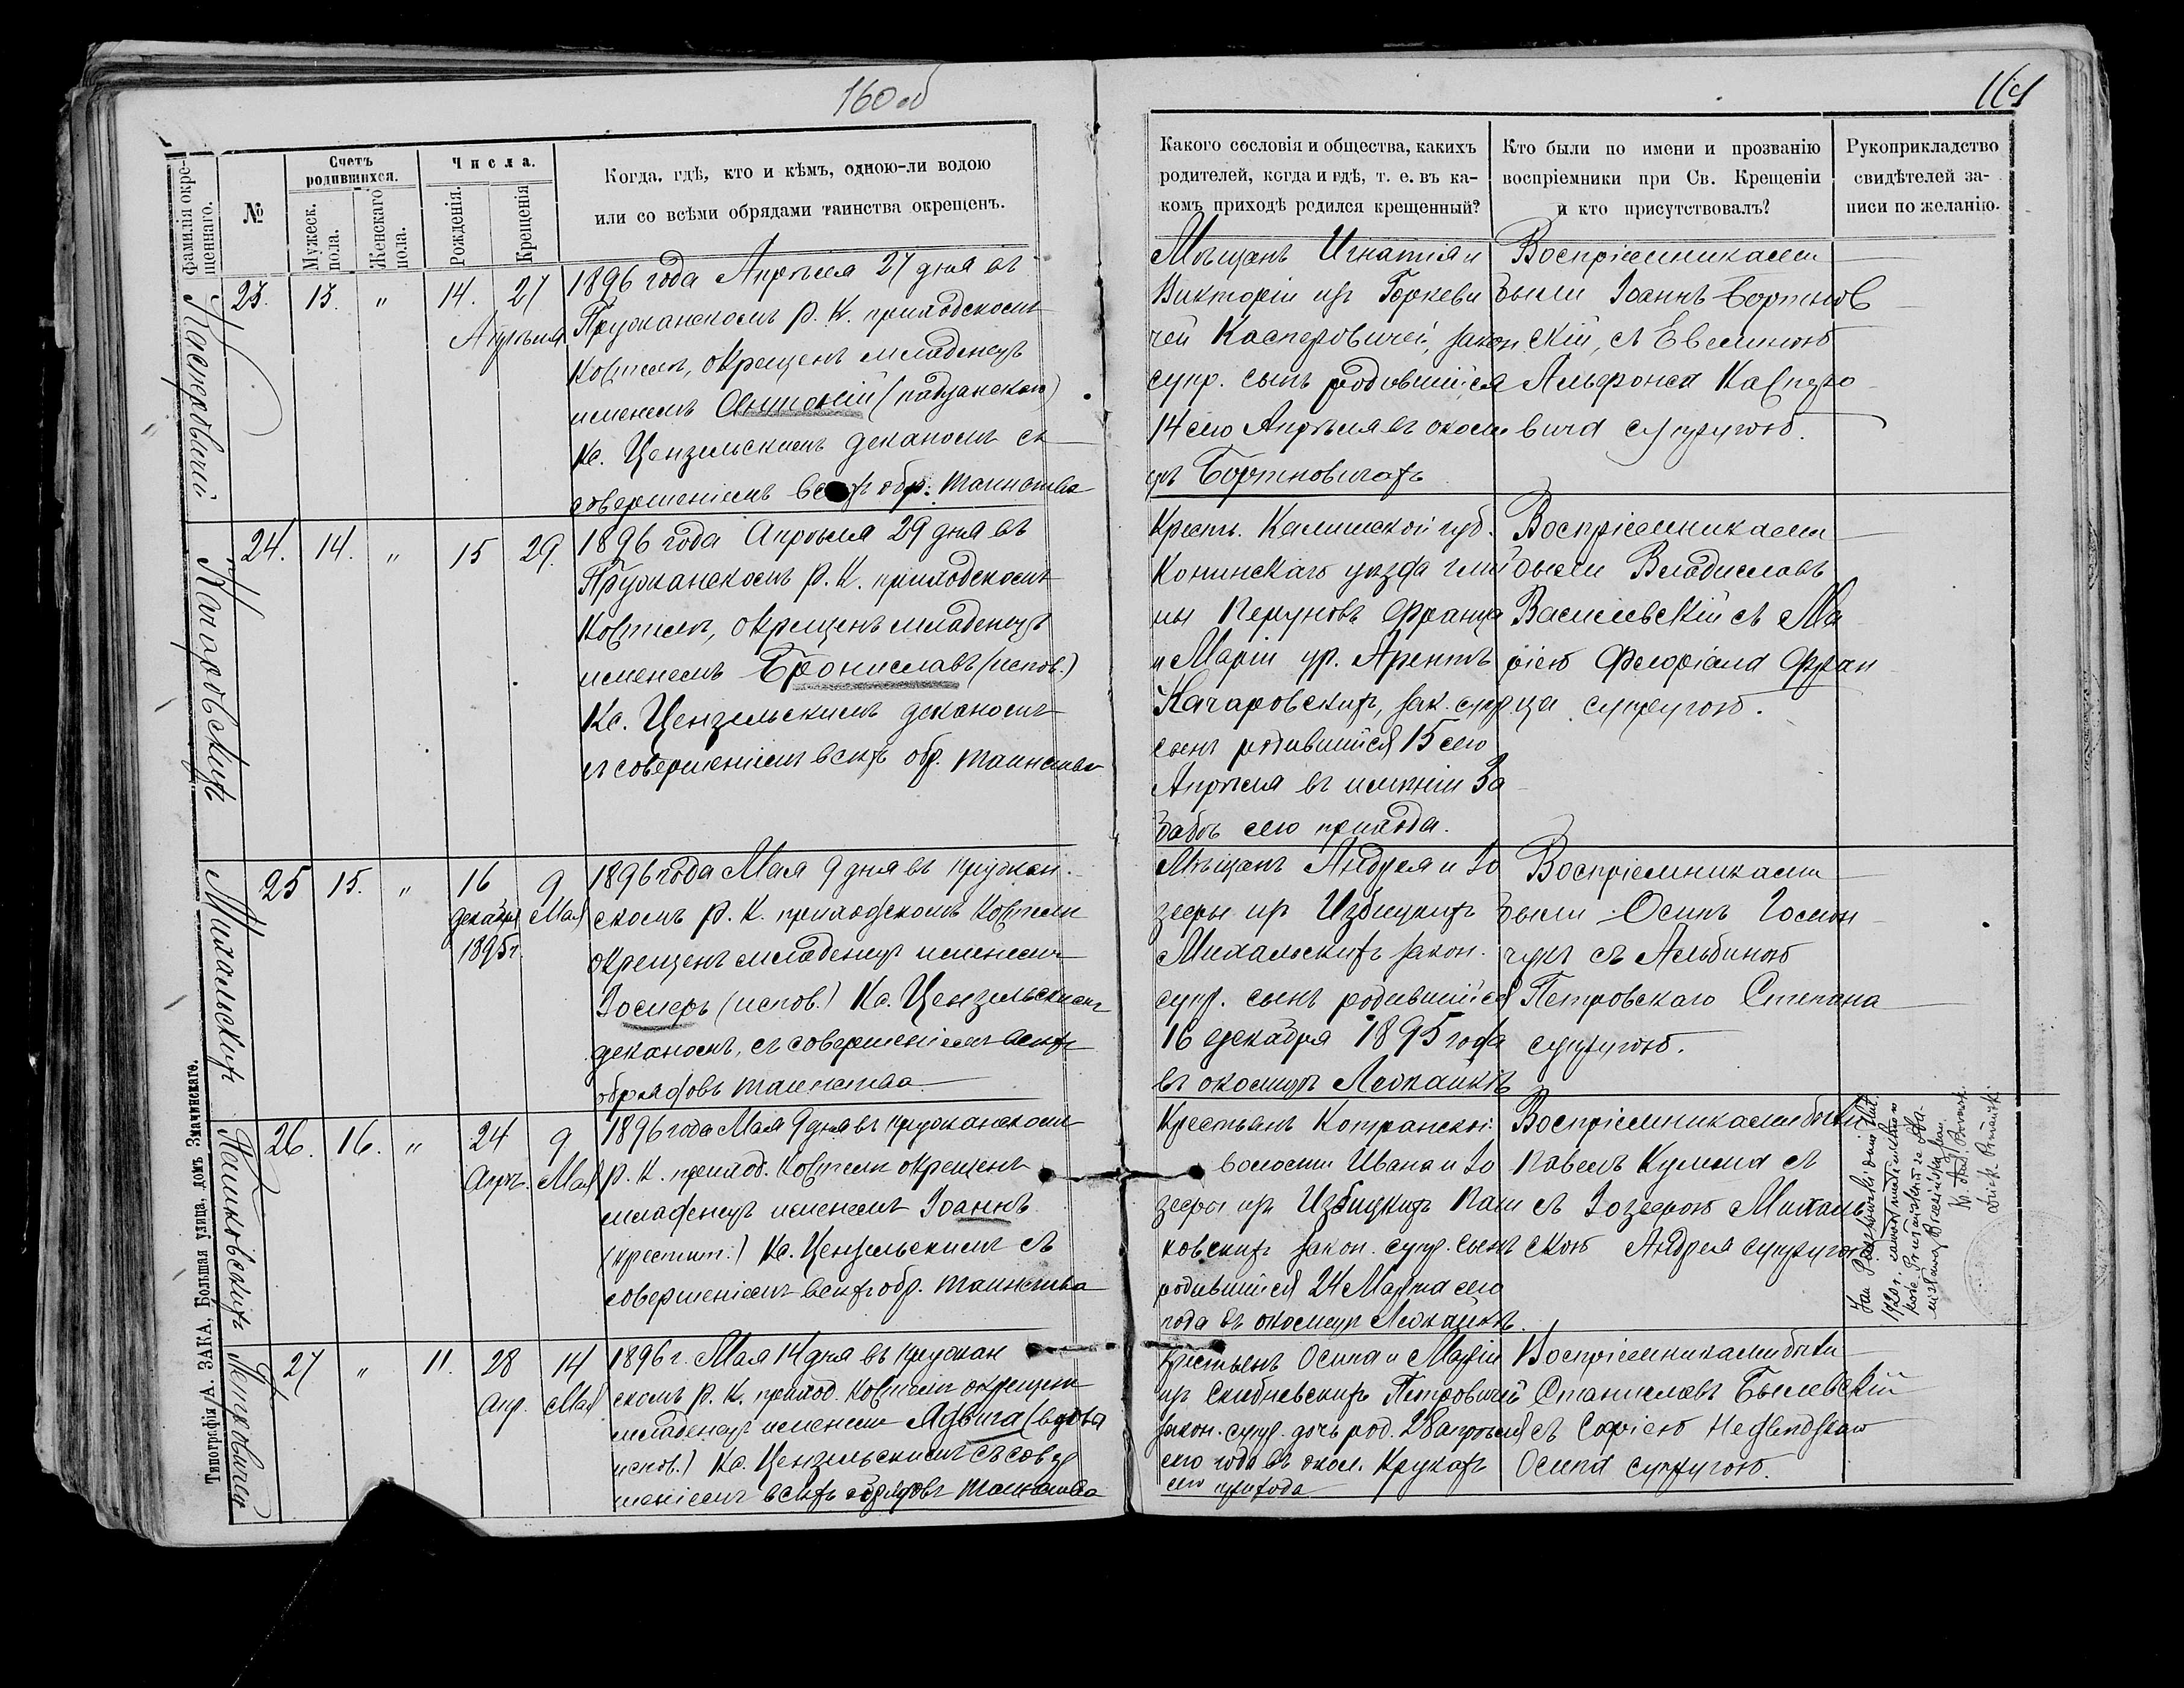 160 об
Фамилія окре-
щеннаго.
№
Счетъ
родившихся.
Мужеск.
пола.
Женскаго
пола.
Числа.
Рожденія.
Крещенія
Когда, гдѣ, кто и кѣмъ, одною-ли водою
или со всѣми обрядами таинства окрещенъ.
Касперовичъ
23. 13. " 14. 27
Апрѣля
1896 года Апрѣля 27 дня въ
Пружанскомъ Р. К. приходскомъ
Костелѣ, окрещенъ младенецъ
именемъ Антоній
Кс. Цензельскимъ деканомъ съ
совершеніемъ всѣхъ обр. таинства
Качаровскихъ
24. 14. " 15 29.
1896 года Апрѣля 29 дня въ
Пружанскомъ Р. К. приходскомъ
Костелѣ, окрещенъ младенецъ
именемъ Брониславъ (испов.)
Кс. Цензельскимъ деканомъ
съ совершеніемъ всѣхъ обр. таинства
Михальскихъ
25 15. " 16 9
декабря Мая
1895 г.
1896 года Мая 9 дня въ Пружан-
скомъ Р. К. приходскомъ Костелѣ
окрещенъ младенецъ именемъ
Іосифъ (испов.) Кс. Цензельскимъ
деканомъ, съ совершеніемъ всѣхъ
обрядовъ таинства
Пашковскихъ
26. 16. " 24 9
Апр. Мая
1896 года Мая 9 дня въ Пружанскомъ
Р. К. приход. Костелѣ окрещенъ
младенецъ именемъ Іоаннъ
(крестит.) Кс. Цензельскимъ съ
совершеніемъ всѣхъ обр. таинства
Петровичей
27 " 11. 28 14
Апр. Мая
1896 г. Мая 14 дня въ Пружан
скомъ Р. К. приход. Костелѣ окрещенъ
младенецъ именемъ Ядвига (вдова
испов.) Кс. Цензельскимъ съ совер
шеніемъ всѣхъ обрядовъ таинства
Типографія А. ЗАКА, Большая улица, домъ Значинскаго.
161
Какого сословія и общества, какихъ
родителей, когда и гдѣ, т. е. въ ка-
комъ приходѣ родился крещенный?
Кто были по имени и прозванію
воспріемники при Св. Крещеніи
и кто присутствовалъ?
Рукоприкладство
свидѣтелей за-
писи по желанію.
Мѣщанъ Игнатія и
Викторіи изъ Горкеви
чей Касперовичей, закон
супр. сынъ родившійся
14 сего Апрѣля въ околи
цѣ Бортновичахъ
Воспріемниками
были Іоаннъ Бортнов
скій, съ Евелиною
Альфонса Касперо
вича супругою.
Крест. Калишской губ.
Конинскаго уѣзда гми
ны Перуновъ Франца
и Маріи ур. Арентъ
Качаровскихъ, зак. супр.
сынъ родившійся 15 сего
Апрѣля въ имѣніи За
бабѣ сего прихода.
Воспріемниками
были Владиславъ
Василевскій съ Ма
ріею Флоріана Фран
ца супругою.
Мѣщанъ Андрея и Іо
зефы изъ Избицкихъ
Михальскихъ закон.
супр. сынъ родившійся
16 декабря 1895 года
въ околицѣ Ляхайкѣ
Воспріемниками
были Осипъ Гомон
чукъ съ Альбиною
Петровскаго Степана
супругою.
Крестьянъ Котранской
волости Ивана и Іо
зефы изъ Избицкихъ Паш
ковскихъ закон. супр. сынъ
родившійся 24 Марта сего
года въ околицѣ Ляхайкѣ.
Воспріемниками были
Павелъ Кулеша съ
съ Іозефою Михаль
ской Андрея супругою
1920 r.
Крестьянъ Осипа и Маріи
изъ Скибневскихъ Петровичей
закон. супр. дочь род. 28 апрѣля
сего года въ окол. Крукахъ
сего прихода
Воспріемниками были
Станиславъ Былевскій
съ Софіею
Осипа супругою.